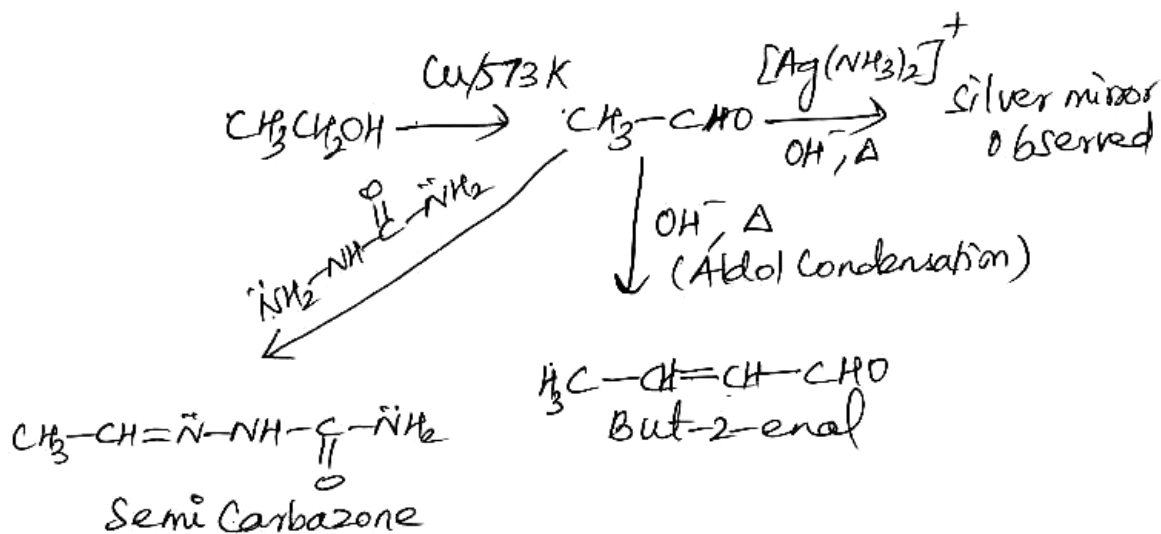 CH3CH2OH ⟶ Cu/573 K CH3–CHO ⟶ [Ag(NH3)2]+ OH⁻, Δ silver mirror
observed
N̈H2–NH–C(=O)–N̈H2
OH⁻, Δ
(Aldol Condensation)
H3C–CH=CH–CHO
But-2-enal
CH3–CH=N̈–NH–C–N̈H2
||
O
Semi Carbazone